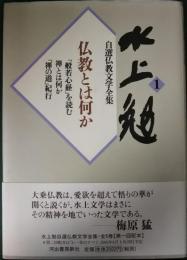 自選仏教文学全集
水上勉
1
仏教とは何か
『般若心経』を読む
禅とは何か
「禅の道」紀行
大乗仏教は、愛欲を超えて悟りの華が
開くと説くが、水上文学はまさに
その精神を地でいった文学である。
梅原猛
水上勉自選仏教文学全集・全5巻【第一回配本】
河出書房新社